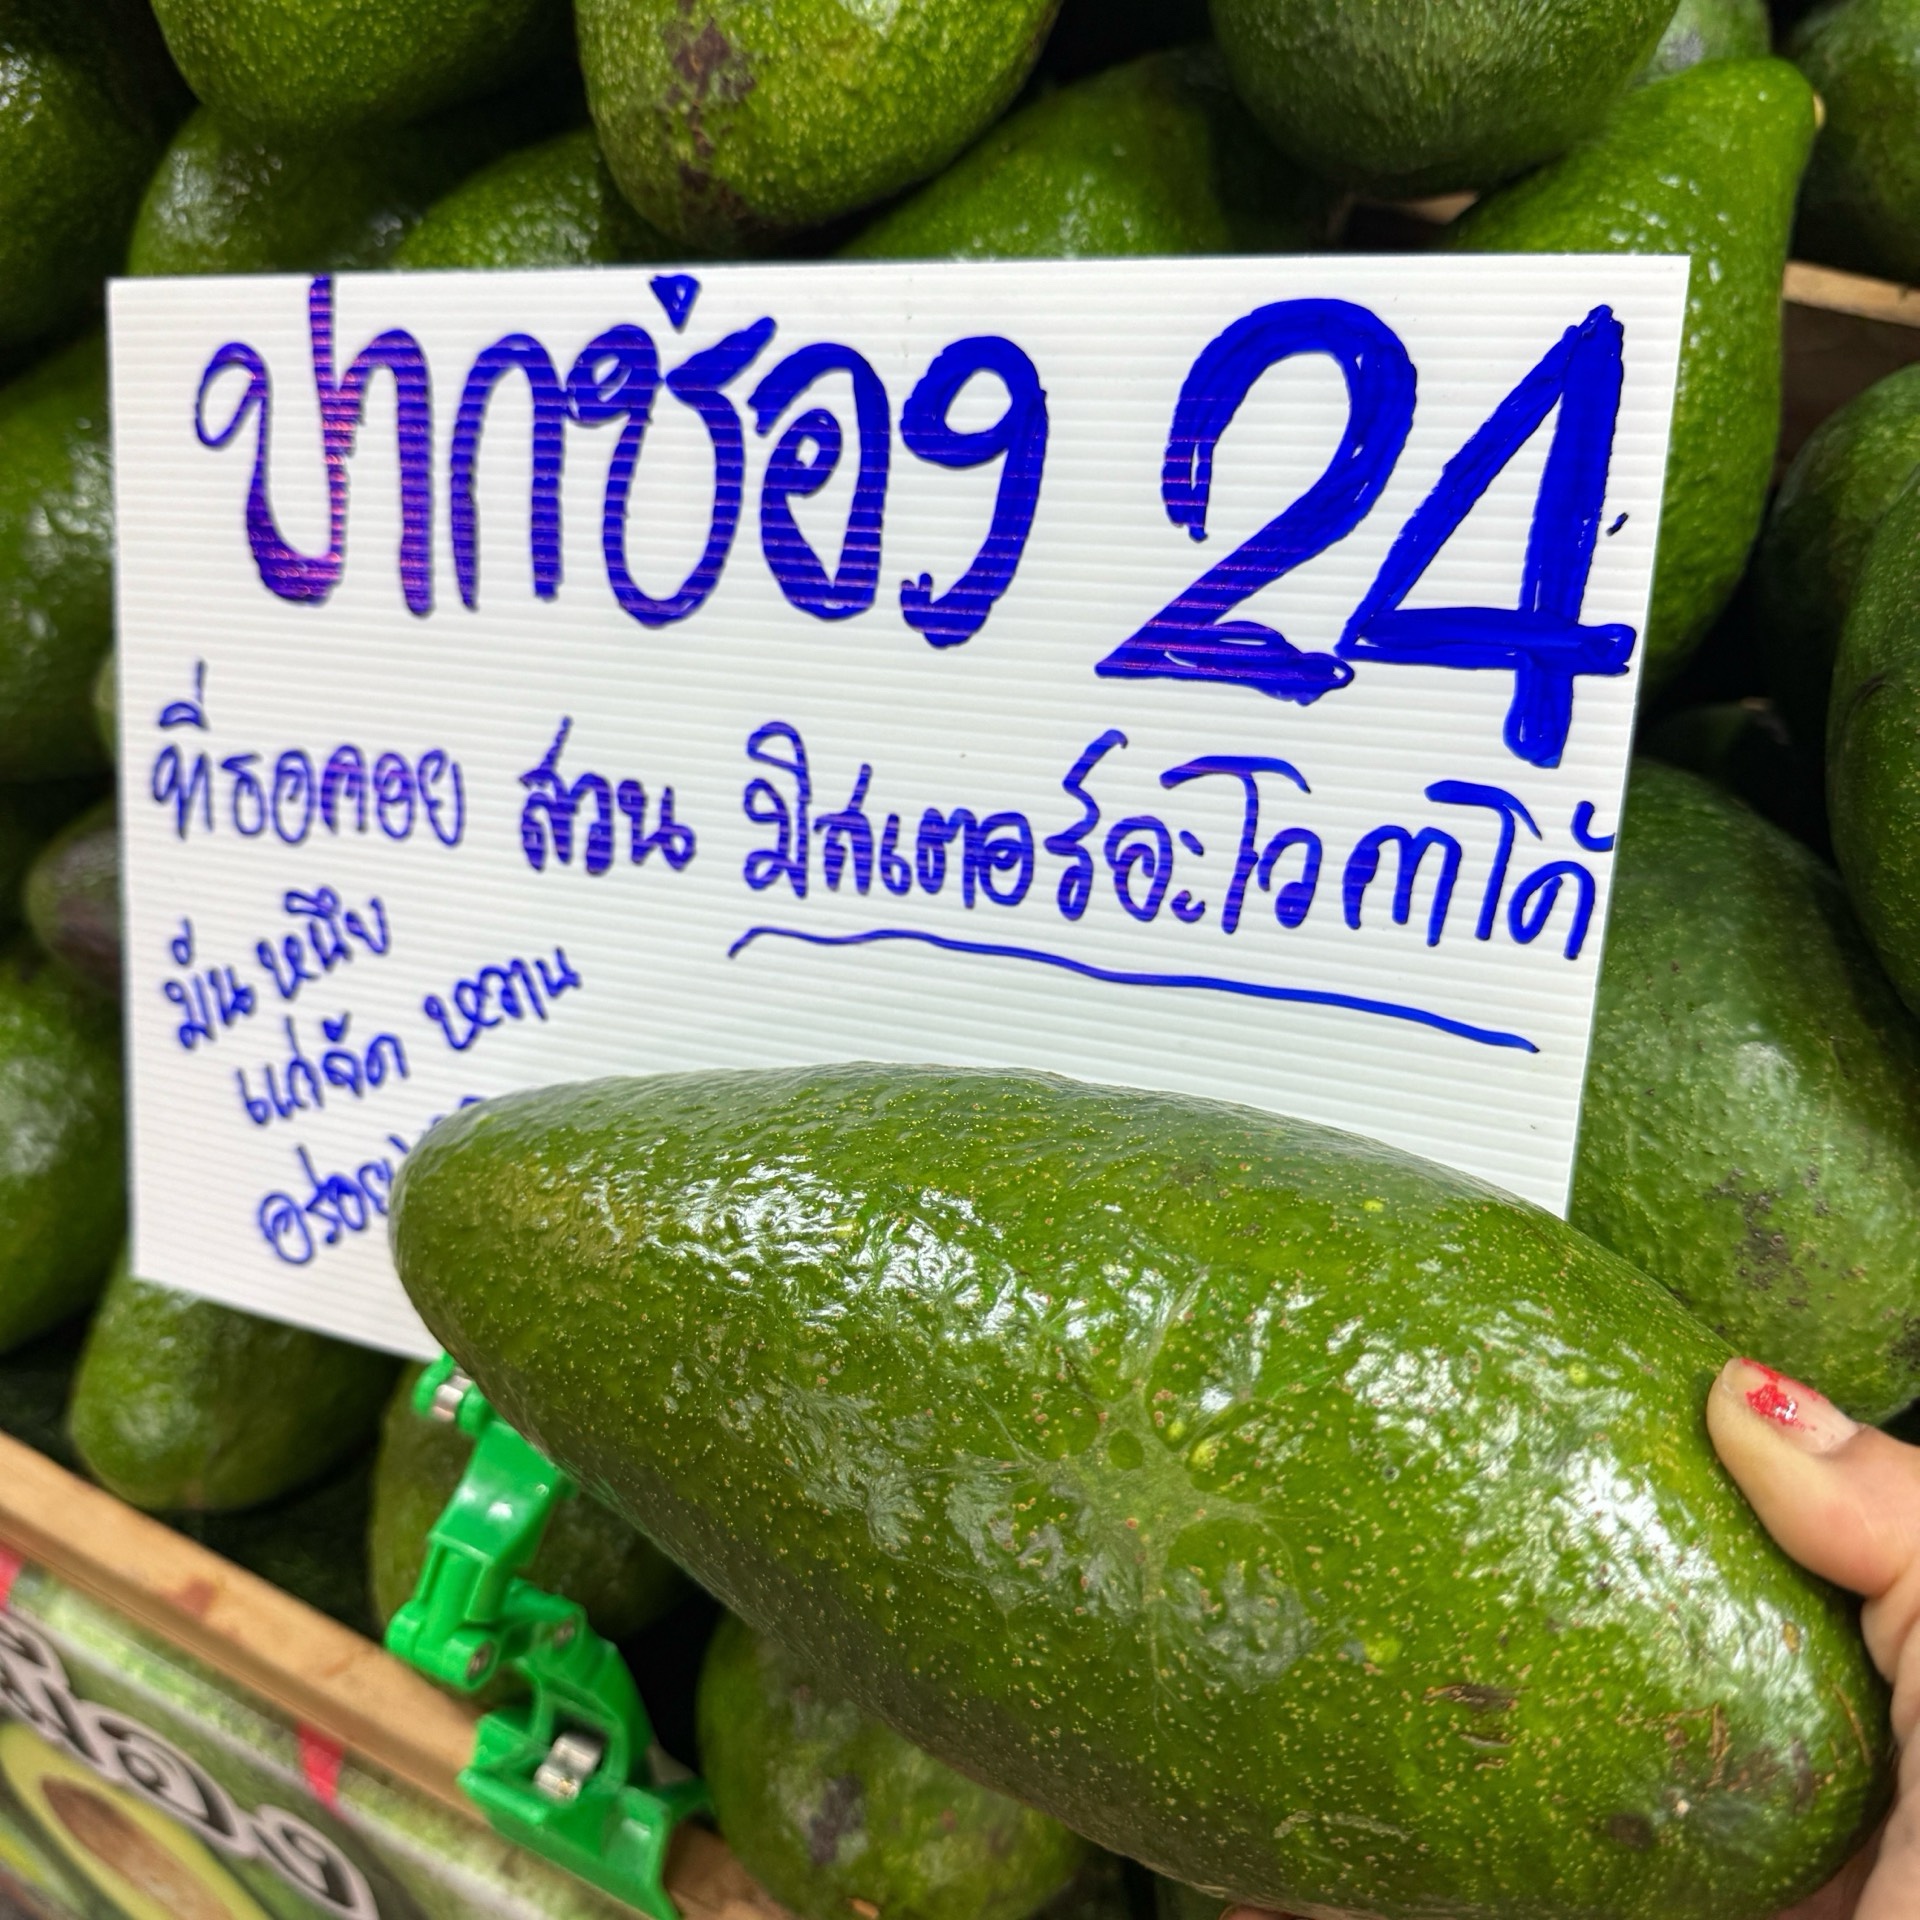 ปากช่อง 24
ที่รอคอย สวน มิสเตอร์อะโวคาโด้
มัน หนึบ
แก่จัด หวาน
อร่อย